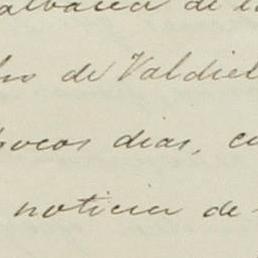 albacea de l
ho de Valdiel
pocos dias, c
noticia de